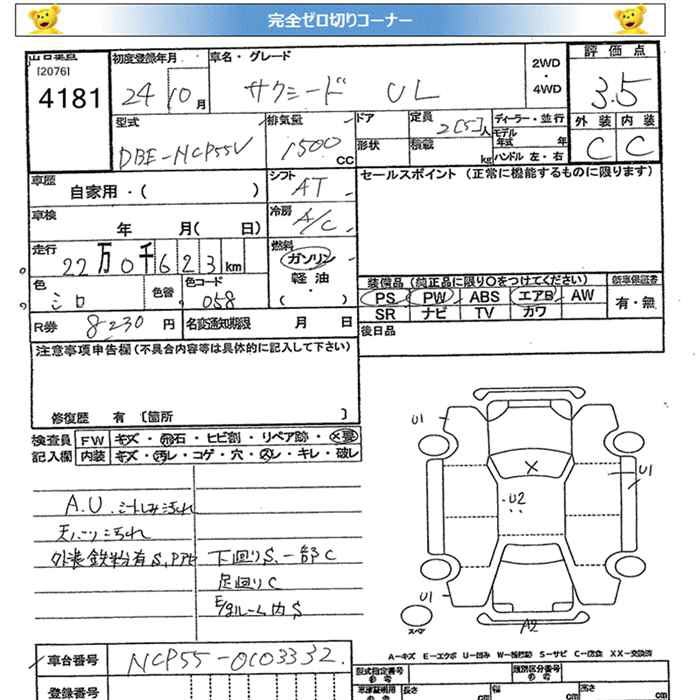 完全ゼロ切りコーナー
出品番号 初度登録年月 車名・グレード 2WD・4WD 評価点
[2076]
4181 24 10月 サクシード UL 3.5
型式 排気量 ドア 定員 2[5]人 ディーラー・並行 外装 内装
DBE-NCP55V 1500CC 形状 積載 kg モデル年式 年 C C
ハンドル 左・右
車歴 自家用・( ) シフト AT セールスポイント (正常に機能するものに限ります)
車検 年 月( 日) 冷房 A/C
走行 22万0千623km 燃料 ガソリン 軽油・( )
色 シロ 色替 色コード 058
装備品 (純正品に限り〇をつけてください) 新車保証書
PS PW ABS エアB AW 有・無
SR ナビ TV カワ
R券 8230円 名変通知期限 月 日 後日品
注意事項申告欄 (不具合内容等は具体的に記入して下さい)
修復歴 有 [箇所 ]
検査員 FW キズ・飛石・ヒビ割・リペア跡・×要
記入欄 内装 キズ・汚レ・コゲ・穴・スレ・キレ・破レ
A.U. シートしみ汚れ
天バリ汚れ
外装鉄粉有 S,PアE 下回りS、一部C
足廻りC
E/gルーム内S
U1
X
U1
U2
U1
スペア
A2
A-キズ E-エクボ U-凹み W-補修跡 S-サビ C-腐食 XX-交換済
車台番号 NCP55-0103332.
型式指定番号 類別区分番号
参考 参考
登録番号 車検証期用 長さ cm 幅 cm 高さ cm